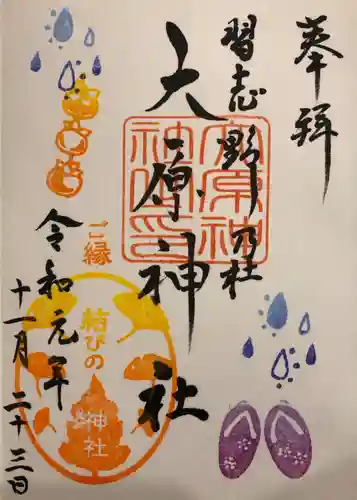 奉拝
習志野乃杜
大原神社
大原神社印
ご縁
結びの
神社
令和元年
十一月二十三日